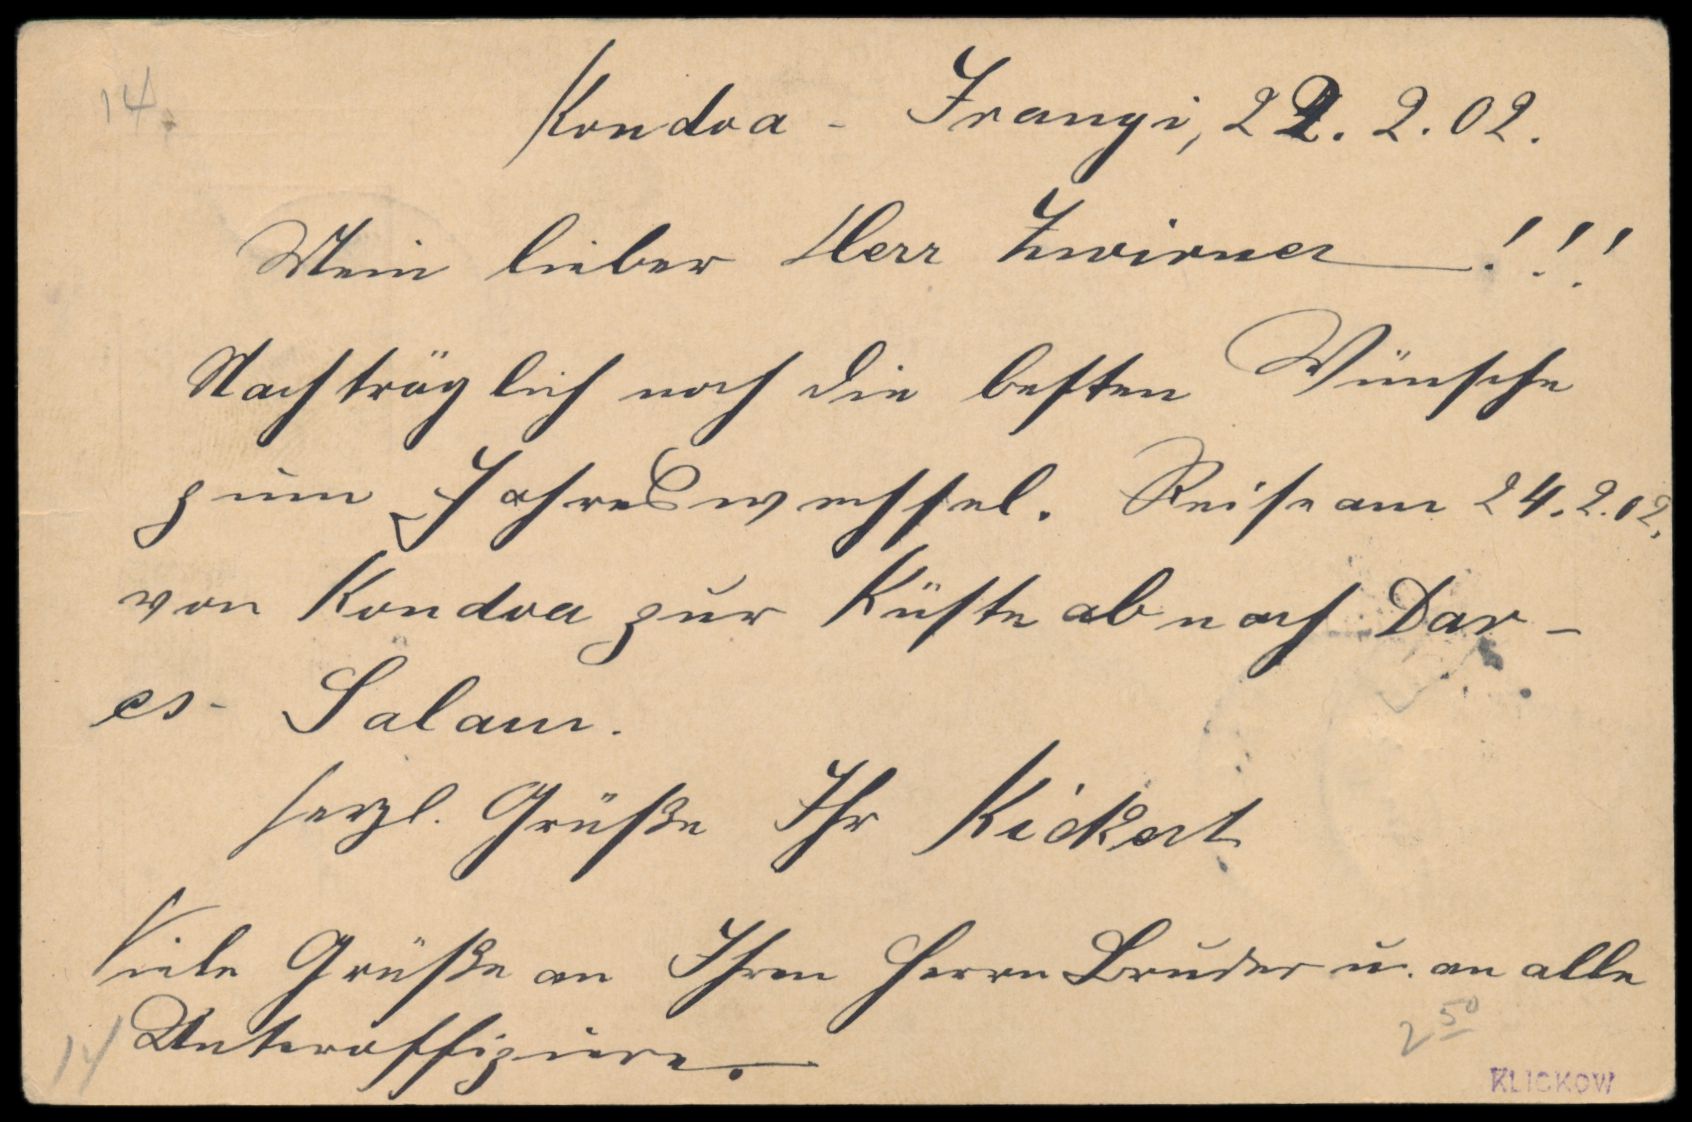 14.
Kondoa - Irangi, 22. 2. 02.
Mein lieber Herr Zwirner!!!
Nachträglich noch die besten Wünsche
zum Jahreswechsel. Reise am 24.2.02.
von Kondoa zur Küste ab nach Dar -
es - Salam.
herzl. Grüße Ihr Kickert
Viele Grüße an Ihren Herrn Bruder u. an alle
Unteroffiziere.
14
2 50
KLICKOW